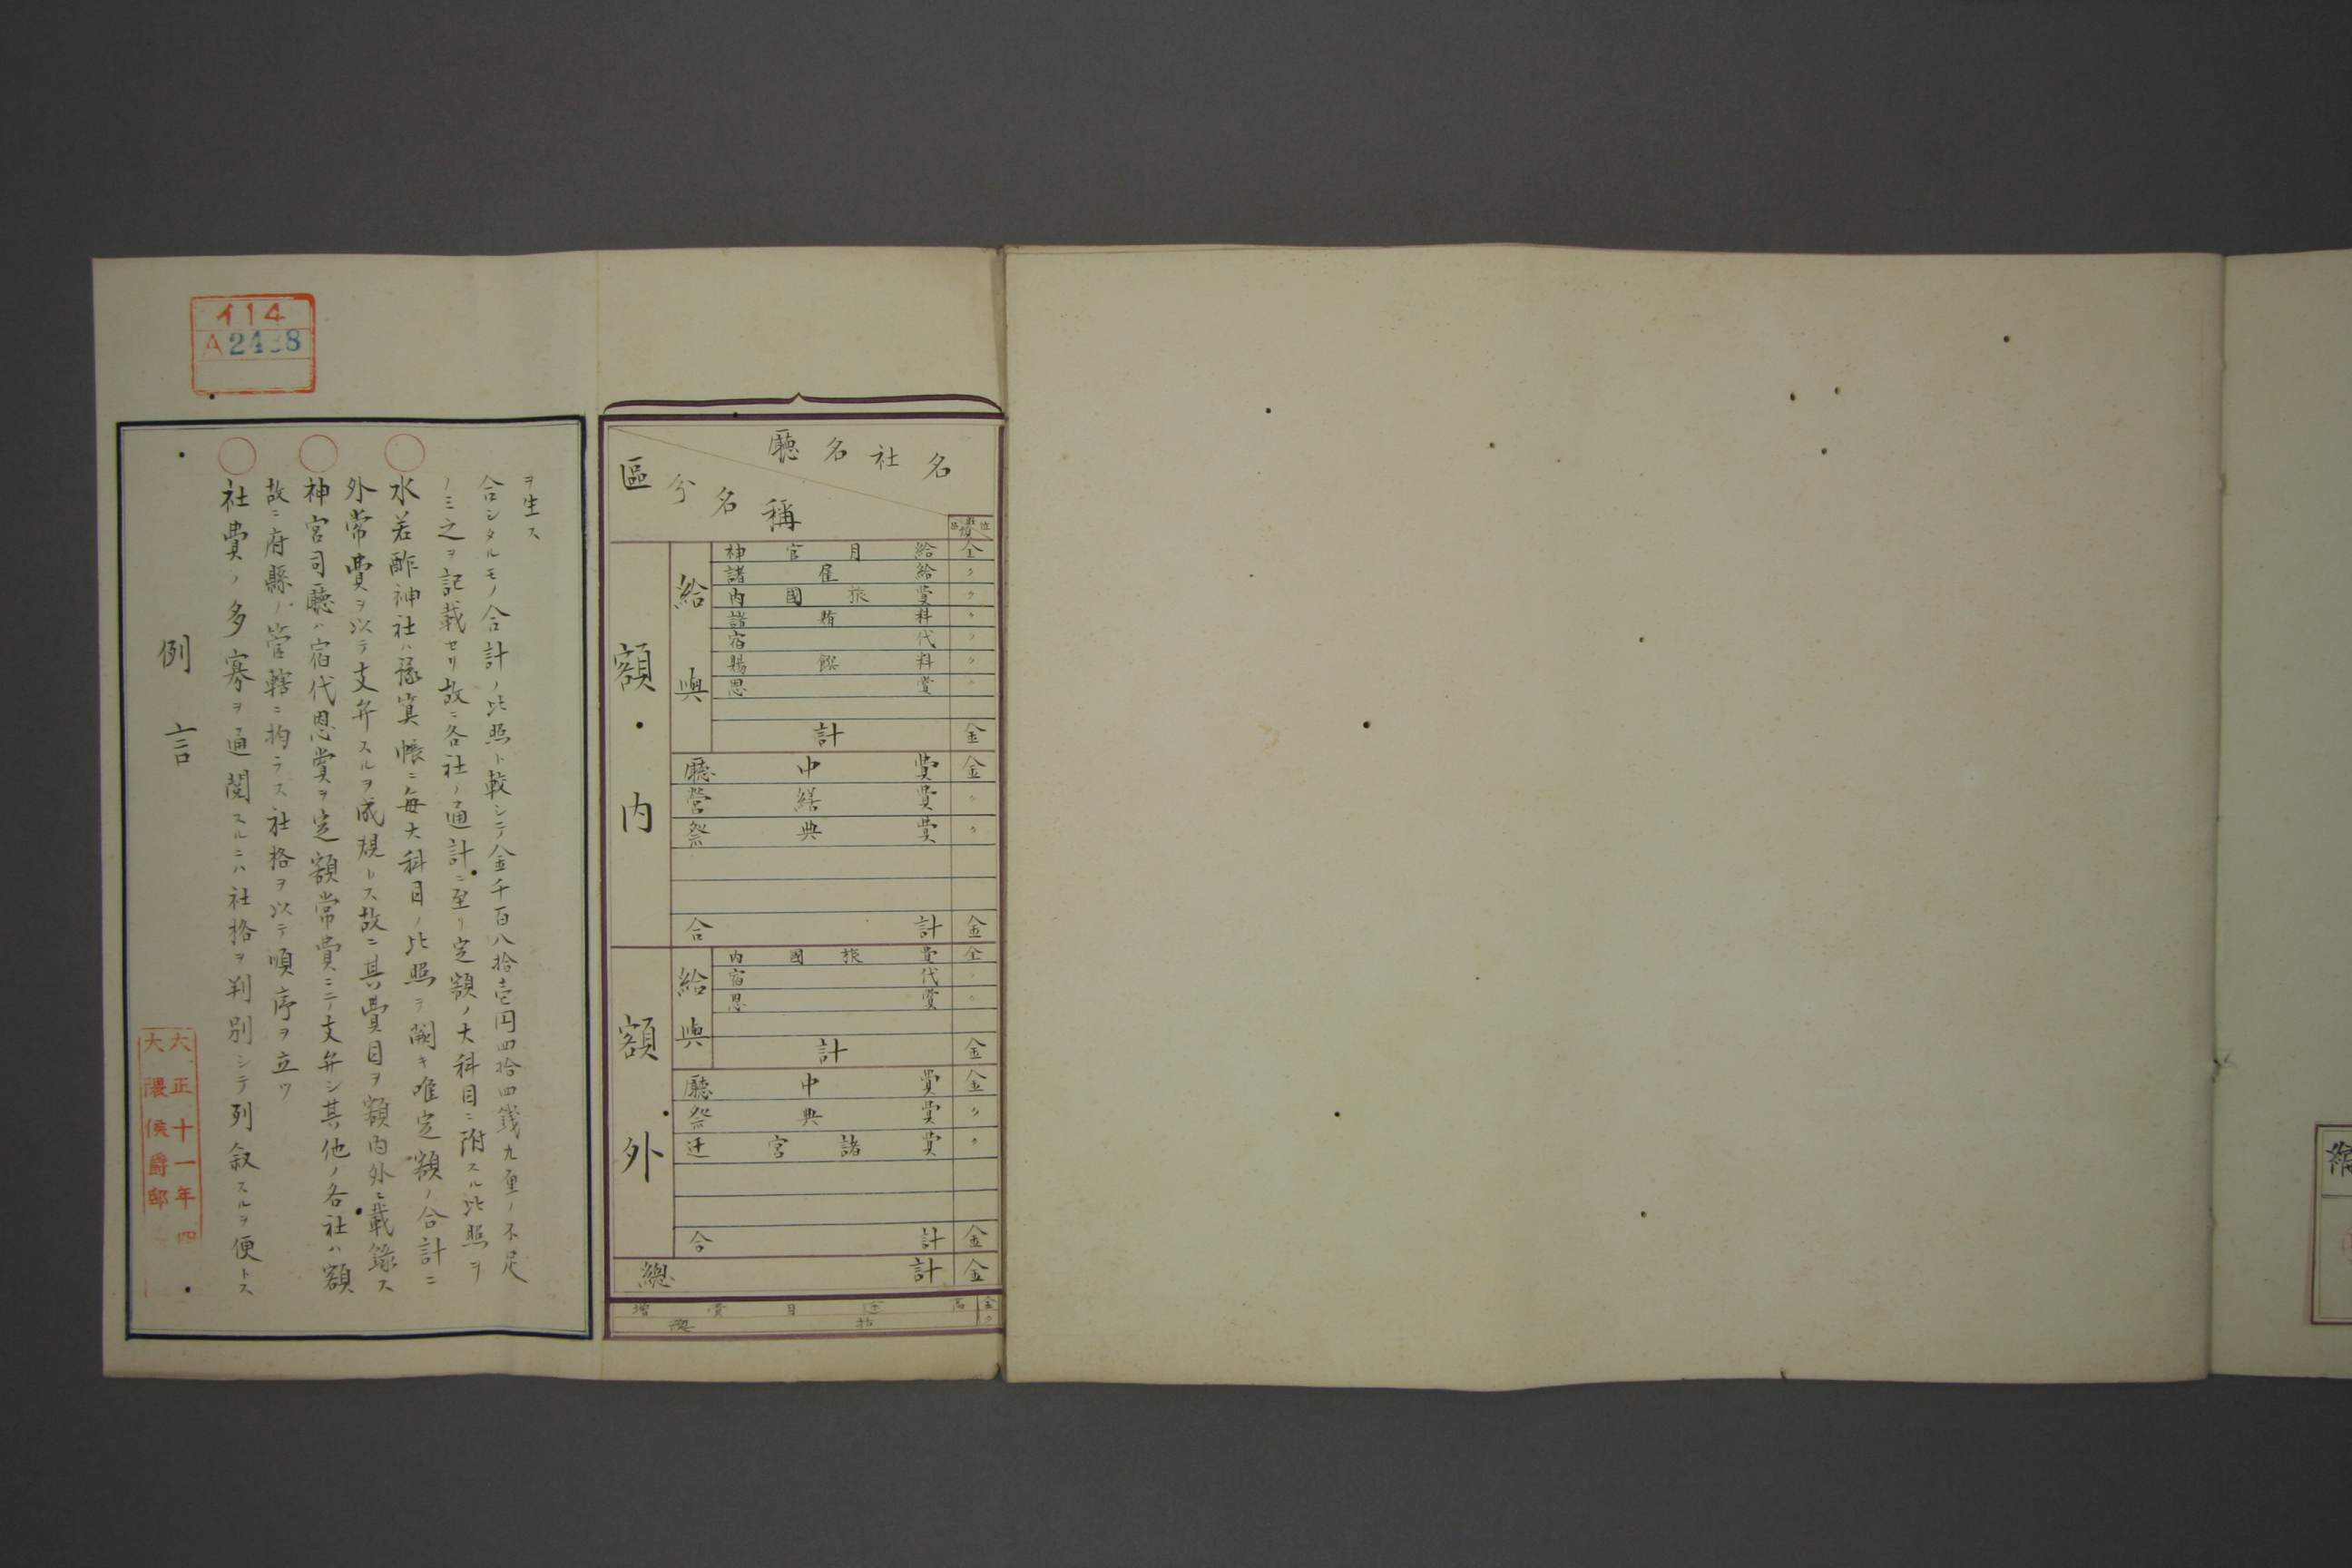 114
A24 8
例言
大正十一年四
大隈侯爵邸
社費ノ多寡ヲ通閲スルニハ社格ヲ判別シテ列叙スルヲ便トス
故ニ府縣ノ管轄ニ拘ラス社格ヲ以テ順序ヲ立ツ
神宮司廳ハ宿代恩賞ヲ定額常費ニテ支弁シ其他ノ各社ハ額
外常費ヲ以テ支弁スルヲ成規トス故ニ其費目ヲ額内外ニ載錄ス
水若酢神社ハ豫算帳ニ毎大科目ノ比照ヲ闕キ唯定額ノ合計ニ
ノミ之ヲ記載セリ故ニ各社ノ通計ニ至リ定額ノ大科目ニ附スル比照ヲ
合シタルモノ合計ノ比照ト較シテ金千百八拾壱円四拾四錢九厘ノ不足
ヲ生ス
廳名社名
區分名稱
額内
給與
神官月給 金
諸雇給 〃
内國旅費 〃
諸賄料 〃
宿代 〃
賜饌料 〃
恩賞 〃
計 金
廳中費 金
營繕費 〃
祭典費 〃
合計 金
額外
給與
内國旅費 金
宿代 〃
恩賞 〃
計 金
廳中費 金
祭典費 〃
迁宮諸費 〃
合計 金
總計 金